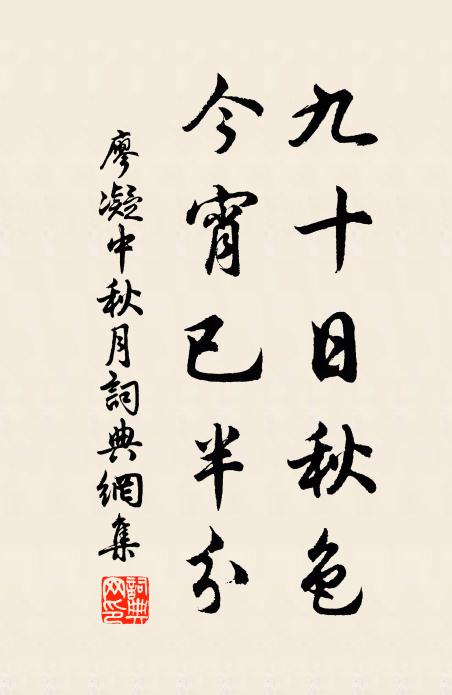 九十日秋色
今宵已半分
廖凝中秋月詞典網集
詞典网印